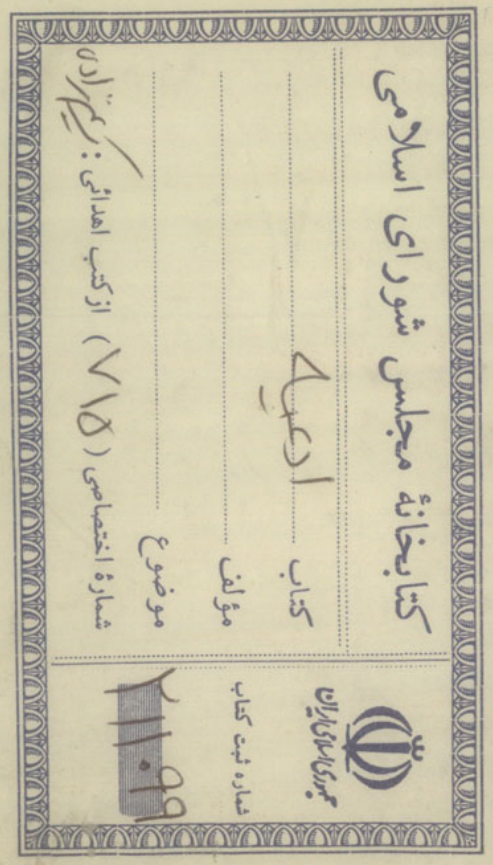 کتابخانهٔ مجلس شورای اسلامی
کتاب ادعیه
مؤلف
موضوع
شمارهٔ اختصاصی (۷۱۵) از کتب اهدائی:
جمهوری اسلامی ایران
شماره ثبت کتاب
۲۱۱۰۹۹